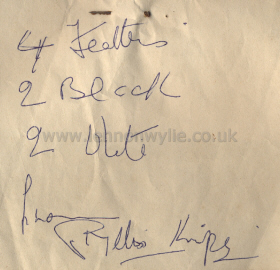 4 Feathers
2 Black
2 White
www.lennonwylie.co.uk
from
Phyllis